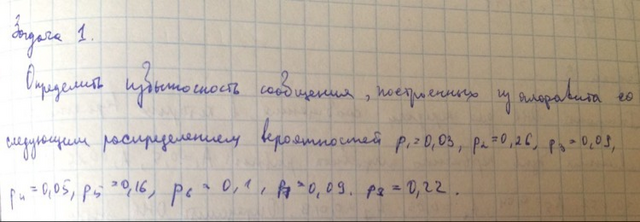 Задача 1.
Определить избыточность сообщения, построенных из алфавита со
следующим распределением вероятностей p₁=0,03, p₂=0,26, p₃=0,09,
p₄=0,05, p₅=0,16, p₆=0,1, p₇=0,09. p₈=0,22.